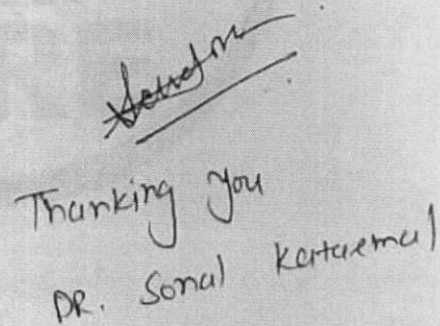 Thanking you
DR. Sonal Kataemal